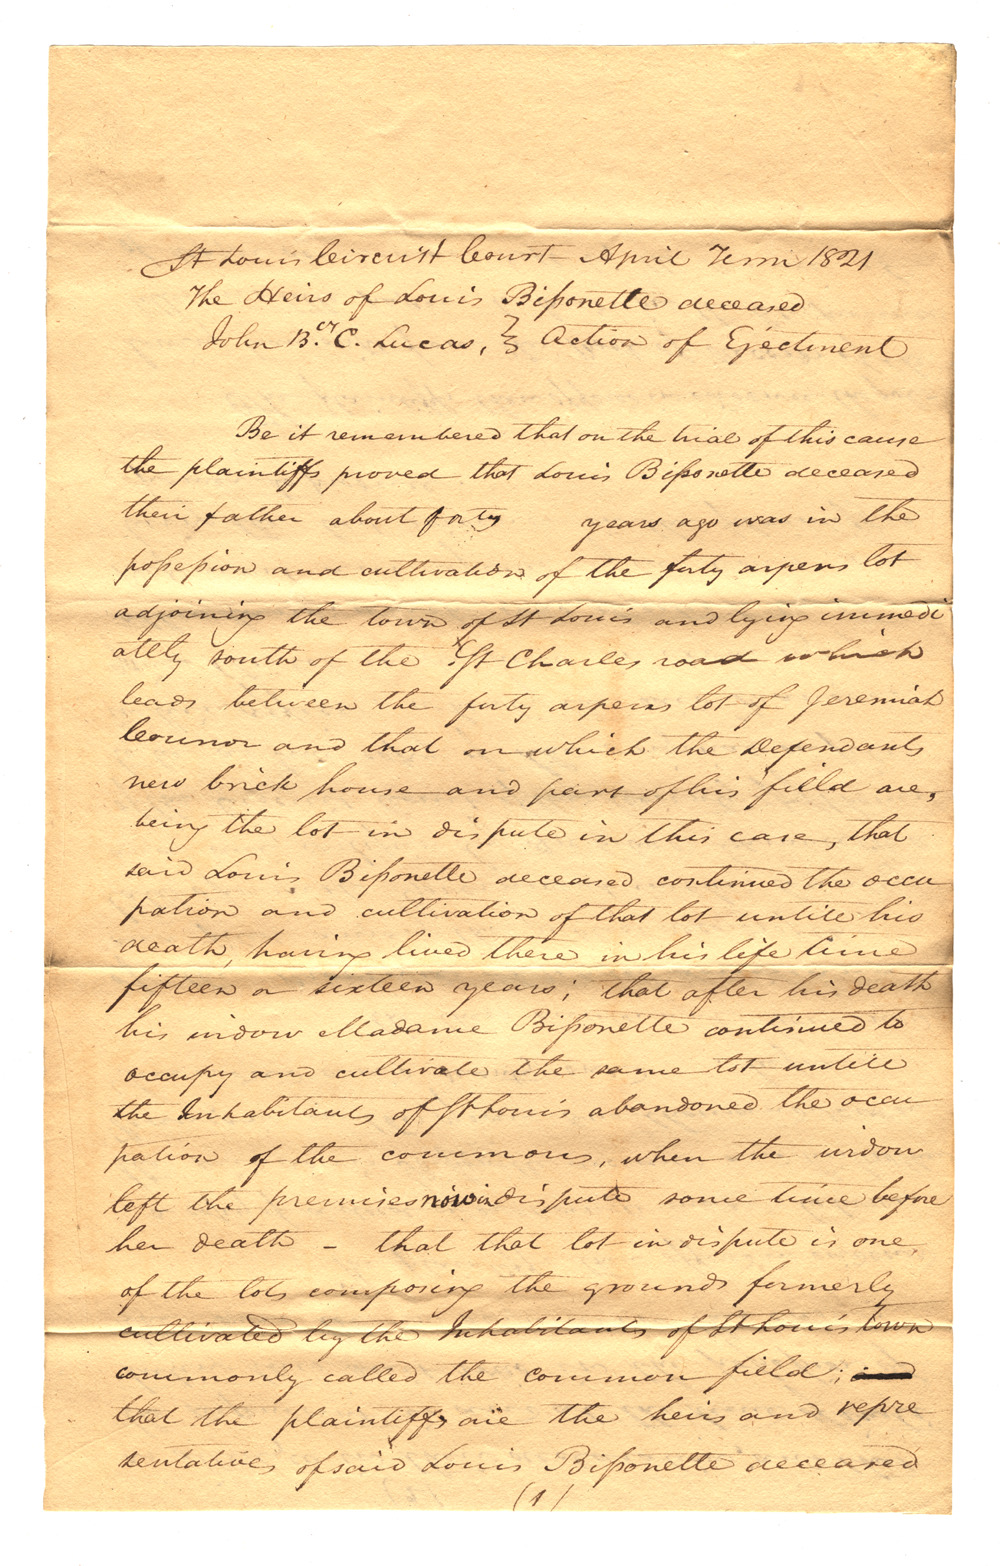 St Louis Circuit Court April Term 1821
The Heirs of Louis Bissonette deceased
John B. C. Lucas, } Action of Ejectment
Be it remembered that on the trial of this cause
the plaintiffs proved that Louis Bissonette deceased
their father about forty years ago was in the
possession and cultivation of the forty arpens lot
adjoining the town of St Louis and lying immedi
ately south of the St Charles road which
leads between the forty arpens lot of Jeremiah
Counnor and that on which the Defendants
new brick house and part of his field are,
being the lot in dispute in this case, that
said Louis Bissonette deceased continued the occu
pation and cultivation of that lot untill his
death, having lived there in his life time
fifteen or sixteen years; that after his death
his widow Madame Bissonette continued to
occupy and cultivate the same lot untill
the Inhabitants of St Louis abandoned the occu
pation of the commons, when the widow
left the premises now in dispute some time before
her death - that that lot in dispute is one
of the lots composing the grounds formerly
cultivated by the Inhabitants of St Louis town
commonly called the common field;
that the plaintiffs are the heirs and repre
sentatives of said Louis Bissonette deceased
(1)